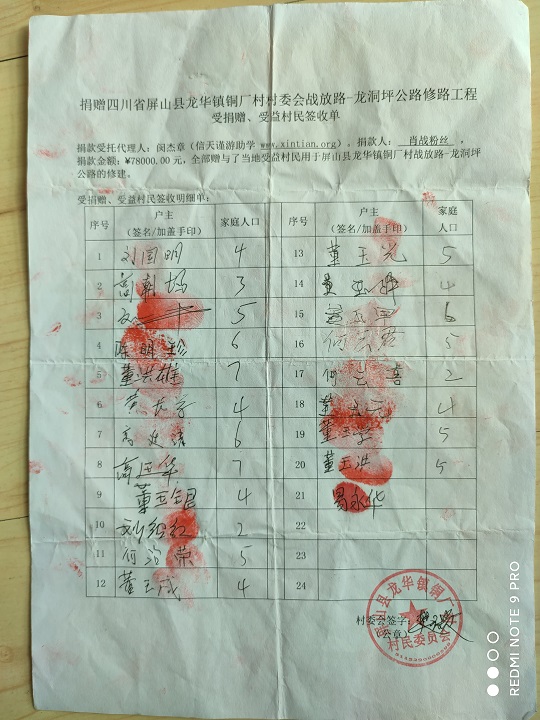 捐赠四川省屏山县龙华镇铜厂村村委会战放路-龙洞坪公路修路工程
受捐赠、受益村民签收单
捐款受托代理人：闵杰章（信天谨游助学 www.xintian.org）。捐款人： 肖战粉丝 。
捐款金额：¥78000.00元，全部赠与了当地受益村民用于屏山县龙华镇铜厂村战放路-龙洞坪
公路的修建。
受捐赠、受益村民签收明细单：
序号 户主（签名/加盖手印） 家庭人口 序号 户主（签名/加盖手印） 家庭人口
1 刘国明 4 13 董玉光 5
2 3 14 董玉 4
3 5 15 董玉 6
4 陈明珍 6 16 何 5
5 董洪雄 7 17 何 喜 2
6 4 18 董 4
7 6 19 董 5
8 华 7 20 董玉洪 5
9 董玉 4 21 易永华
10 刘绍红 2 22
11 何 荣 5 23
12 董玉成 4 24
村委会签字：
（公章）
屏山县龙华镇铜厂
村民委员会
REDMI NOTE 9 PRO